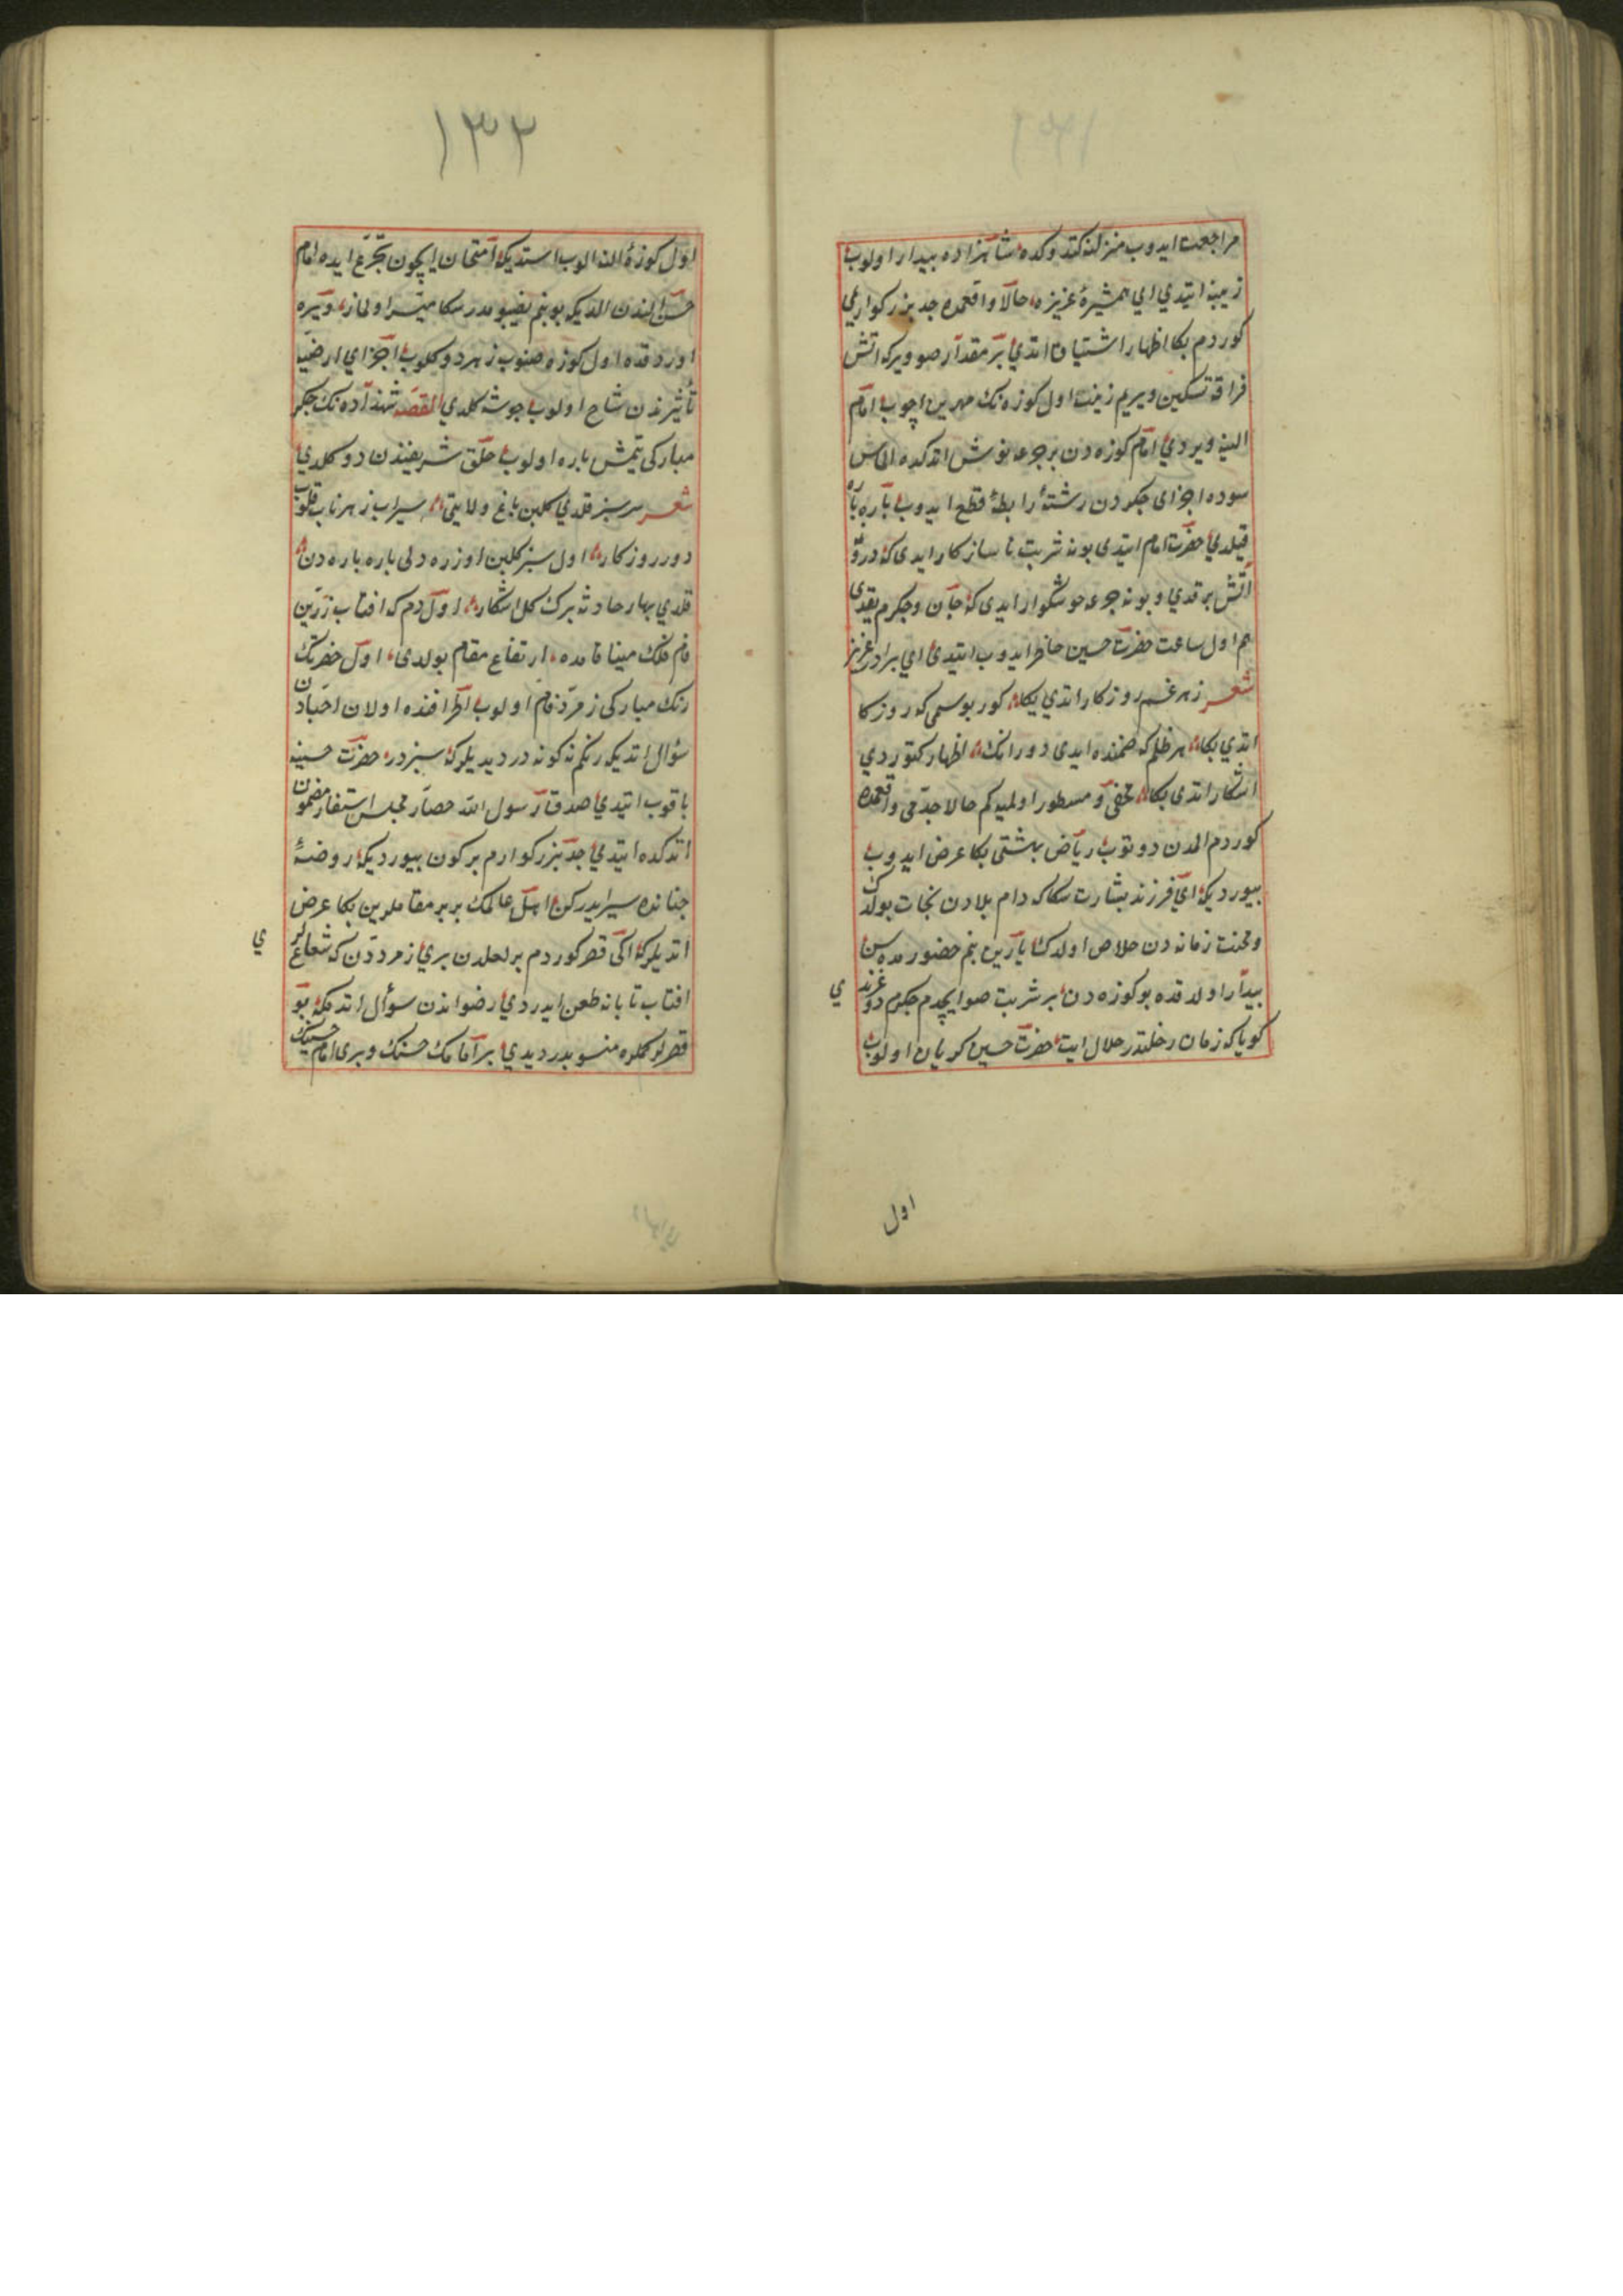 مراجعت ایدوب منزلنه کتدوکده شاهزاده بیدار اولوب
زینبه ایتدي اي همشیرهٔ عزیزه حالا واقعمده جد بزرکواریمي
کوردم بکا اظهار اشتیاق اتدي بر مقدار صو ویر که اتش
فراقه تسکین ویریم زینب اول کوزه نك مهرین اچوب امام
الینه ویردي امام کوزه دن بر جرعه نوش اتدکده الماس
سوده اجزای جکردن رشتهٔ رابطهٔ قطع ایدوب پاره پاره
قیلدي حضرت امام ایتدی بو نه شربت ناسازکار ایدی که درونمه
آتش برقدي و بو نه جرعه خوشکوار ایدی که جان وجکرم یقدی
هم اول ساعت حضرت حسین حاضر ایدوب ایتدی اي برادر عزیز
شعر زهر غم روزکار اتدي بکا کور بو سمی که روزکار
اتدي بکا هر ظلم که ضمنده ایدی دورانك اظهار کتوردي
اشکار اتدی بکا مخفی و مسطور اولمیه کم حالا جدّمی واقعمده
کوردم المدن دوتوب ریاض بهشتی بکا عرض ایدوب
بیوردیکه اي فرزند بشارت سکا که دام بلادن نجات بولدك
ومحنت زمانه دن خلاص اولدك یارین بنم حضورمده سن
بیدار اولدقده بو کوزه دن بر شربت صو ایچدم جکرم دوغرندي
کویا که زمان رحلتدر حلال ایت حضرت حسین کریان اولوب
اول
١٣٢
اول کوزهٔ النه الوب استدیکه امتحان ایچون تجرّع ایده امام
حسن الندن الدیکه بو بنم نصیبومدر سکا میسر اولماز ویره
اوردقده اول کوزه صنوب زهر دوکلوب اجزاي ارضیه
تأثیرندن شاح اولوب جوشه کلدي القصه شهزاده نك جکر
مبارکی یتمش پاره اولوب حلق شریفندن دوکلدي
شعر سرسبز قلدي کلبن باغ ولایتی سیراب زهر ناب قلوب
دور روزکار اول سبز کلبن اوزره دلی پاره پاره دن
قلدي بهار حادثه برك کل اشکار اول دم که افتاب زرّین
فام فلك مینا فامده ارتفاع مقام بولدی اول حضرتك
رنك مبارکی زمرّد فام اولوب اطرافنده اولان احبّادن
سؤال اتدیکه رنکم نه کونه در دیدیلر که سبزدر حضرت حسینه
باقوب ایتدي صدق رسول الله حضّار مجلس استفسار مضمون
اتدکده ایتدي جد بزرکوارم بر کون بیوردیکه روضهٔ
جنانده سیر ایدرکن اهل عالمك بر بر مقاملرین بکا عرض
اتدیلر که اکی قصر کوردم بر لعلدن بري زمرددن که شعاعلري
افتاب تابانه طعن ایدردي رضواندن سؤال اتدمکه بو
قصرلر کملره منسوبدر دیدي بر امامك حسنك وبری امام حسینك